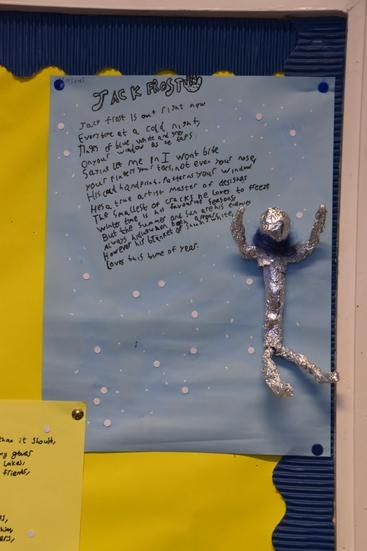 JACK FROST
Jack frost is out right now
Everytime at a cold night,
Flakes of blue white and grey
On your window as he taps
Saying let me in I wont bite
your fingers your toes, not even your nose,
His cold handprint, Patterns your window
Hes a true artist Master of designs
The smallest of cracks he loves to freeze
Winter time is his favourite season,
But the Summer and Sun are his enemies
Always hides when both appear,
However his blanket of Snow white,
Loves this time of year.
than it should,
my gloves
Lakes,
friends,